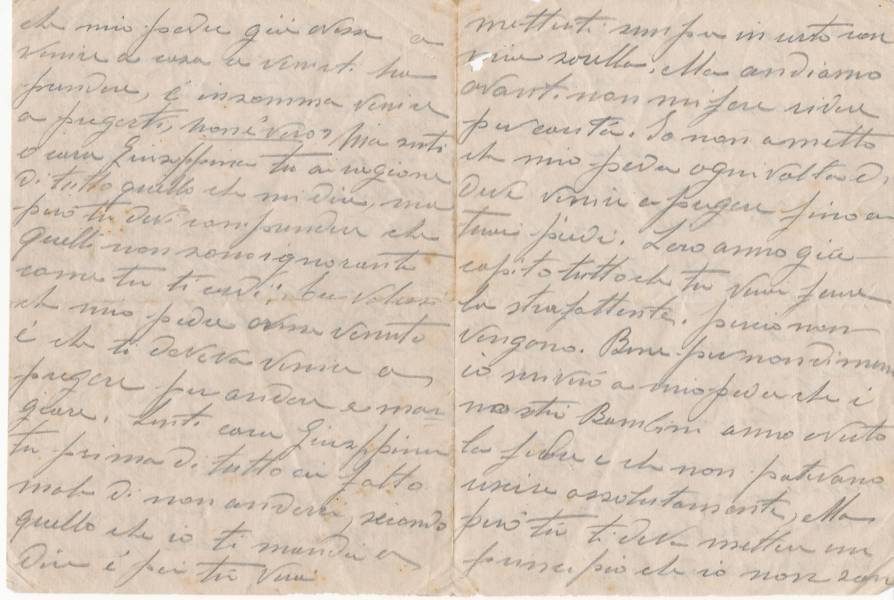 che mio padre già avesse a
venire a casa a venirti ha
prendere, é insomma venire
a pregarti, non é vero? Ma senti
o cara Giuseppina tu ai ragione
di tutto quello che mi dire, ma
però tu devi comprendere che
quelli non sono ignorante
come tu ti credi;
che mio padre avesse venuto
é che ti doveva venire a
pregare per andare a man
giare. Senti cara Giuseppina
tu prima di tutto ai fatto
male di non andarci, secondo
quello che io ti mandai a
dire é poi tu
metterti sempre in urto con
mia sorella. Ma andiamo
avanti non mi fare ridere
per carità. Io non ametto
che mio padre ogni volta di
deve venire a pregare fino a
tuoi piedi. Loro anno già
capito tutto che tu vuoi fare
la strafottente. perciò non
vengono. Bene per non dimeno
io scrivrò a mio padre che i
nostri Bambini anno avuto
la febre e che non potevano
uscire assolutamente, Ma
però tu ti deve mettere un
principio che io non son